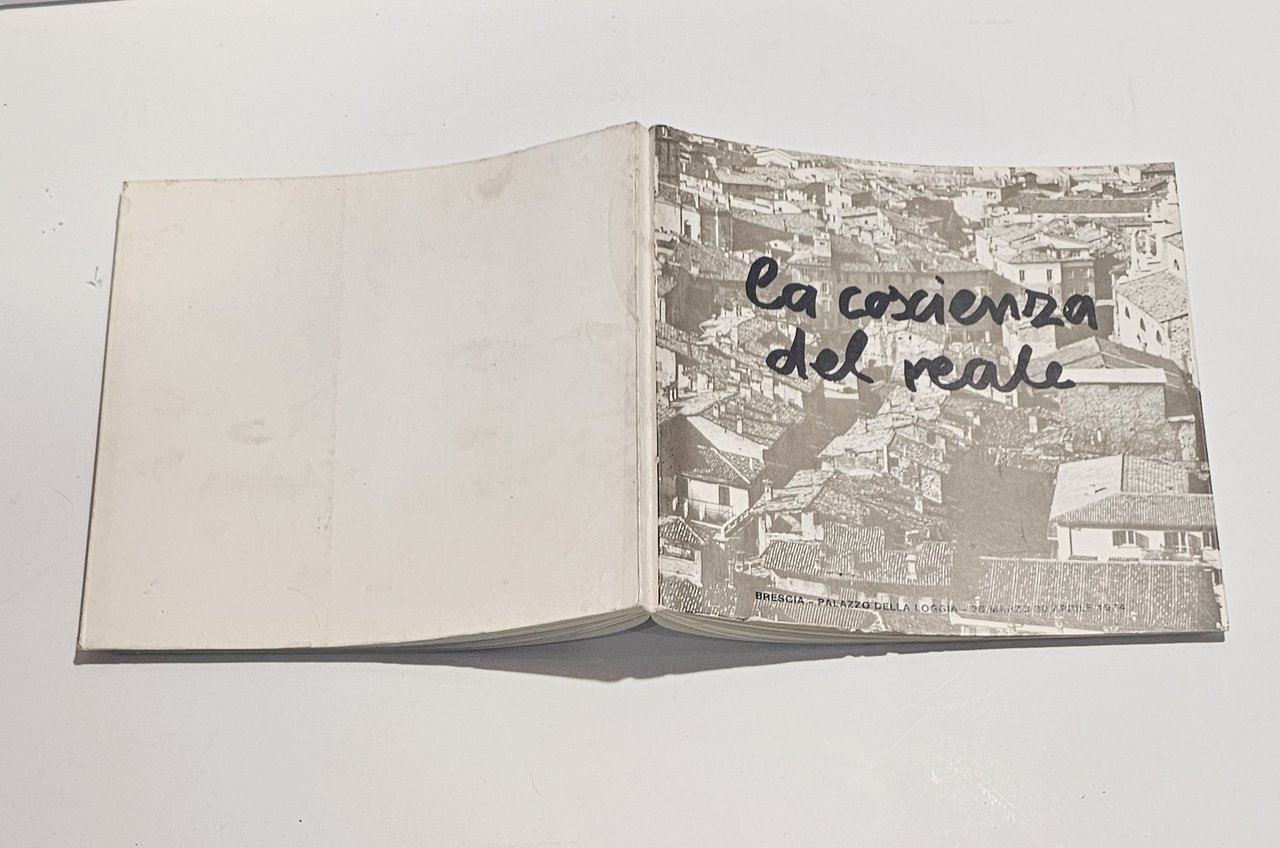 la coscienza
del reale
BRESCIA - PALAZZO DELLA LOGGIA - 26 MARZO 30 APRILE 1974